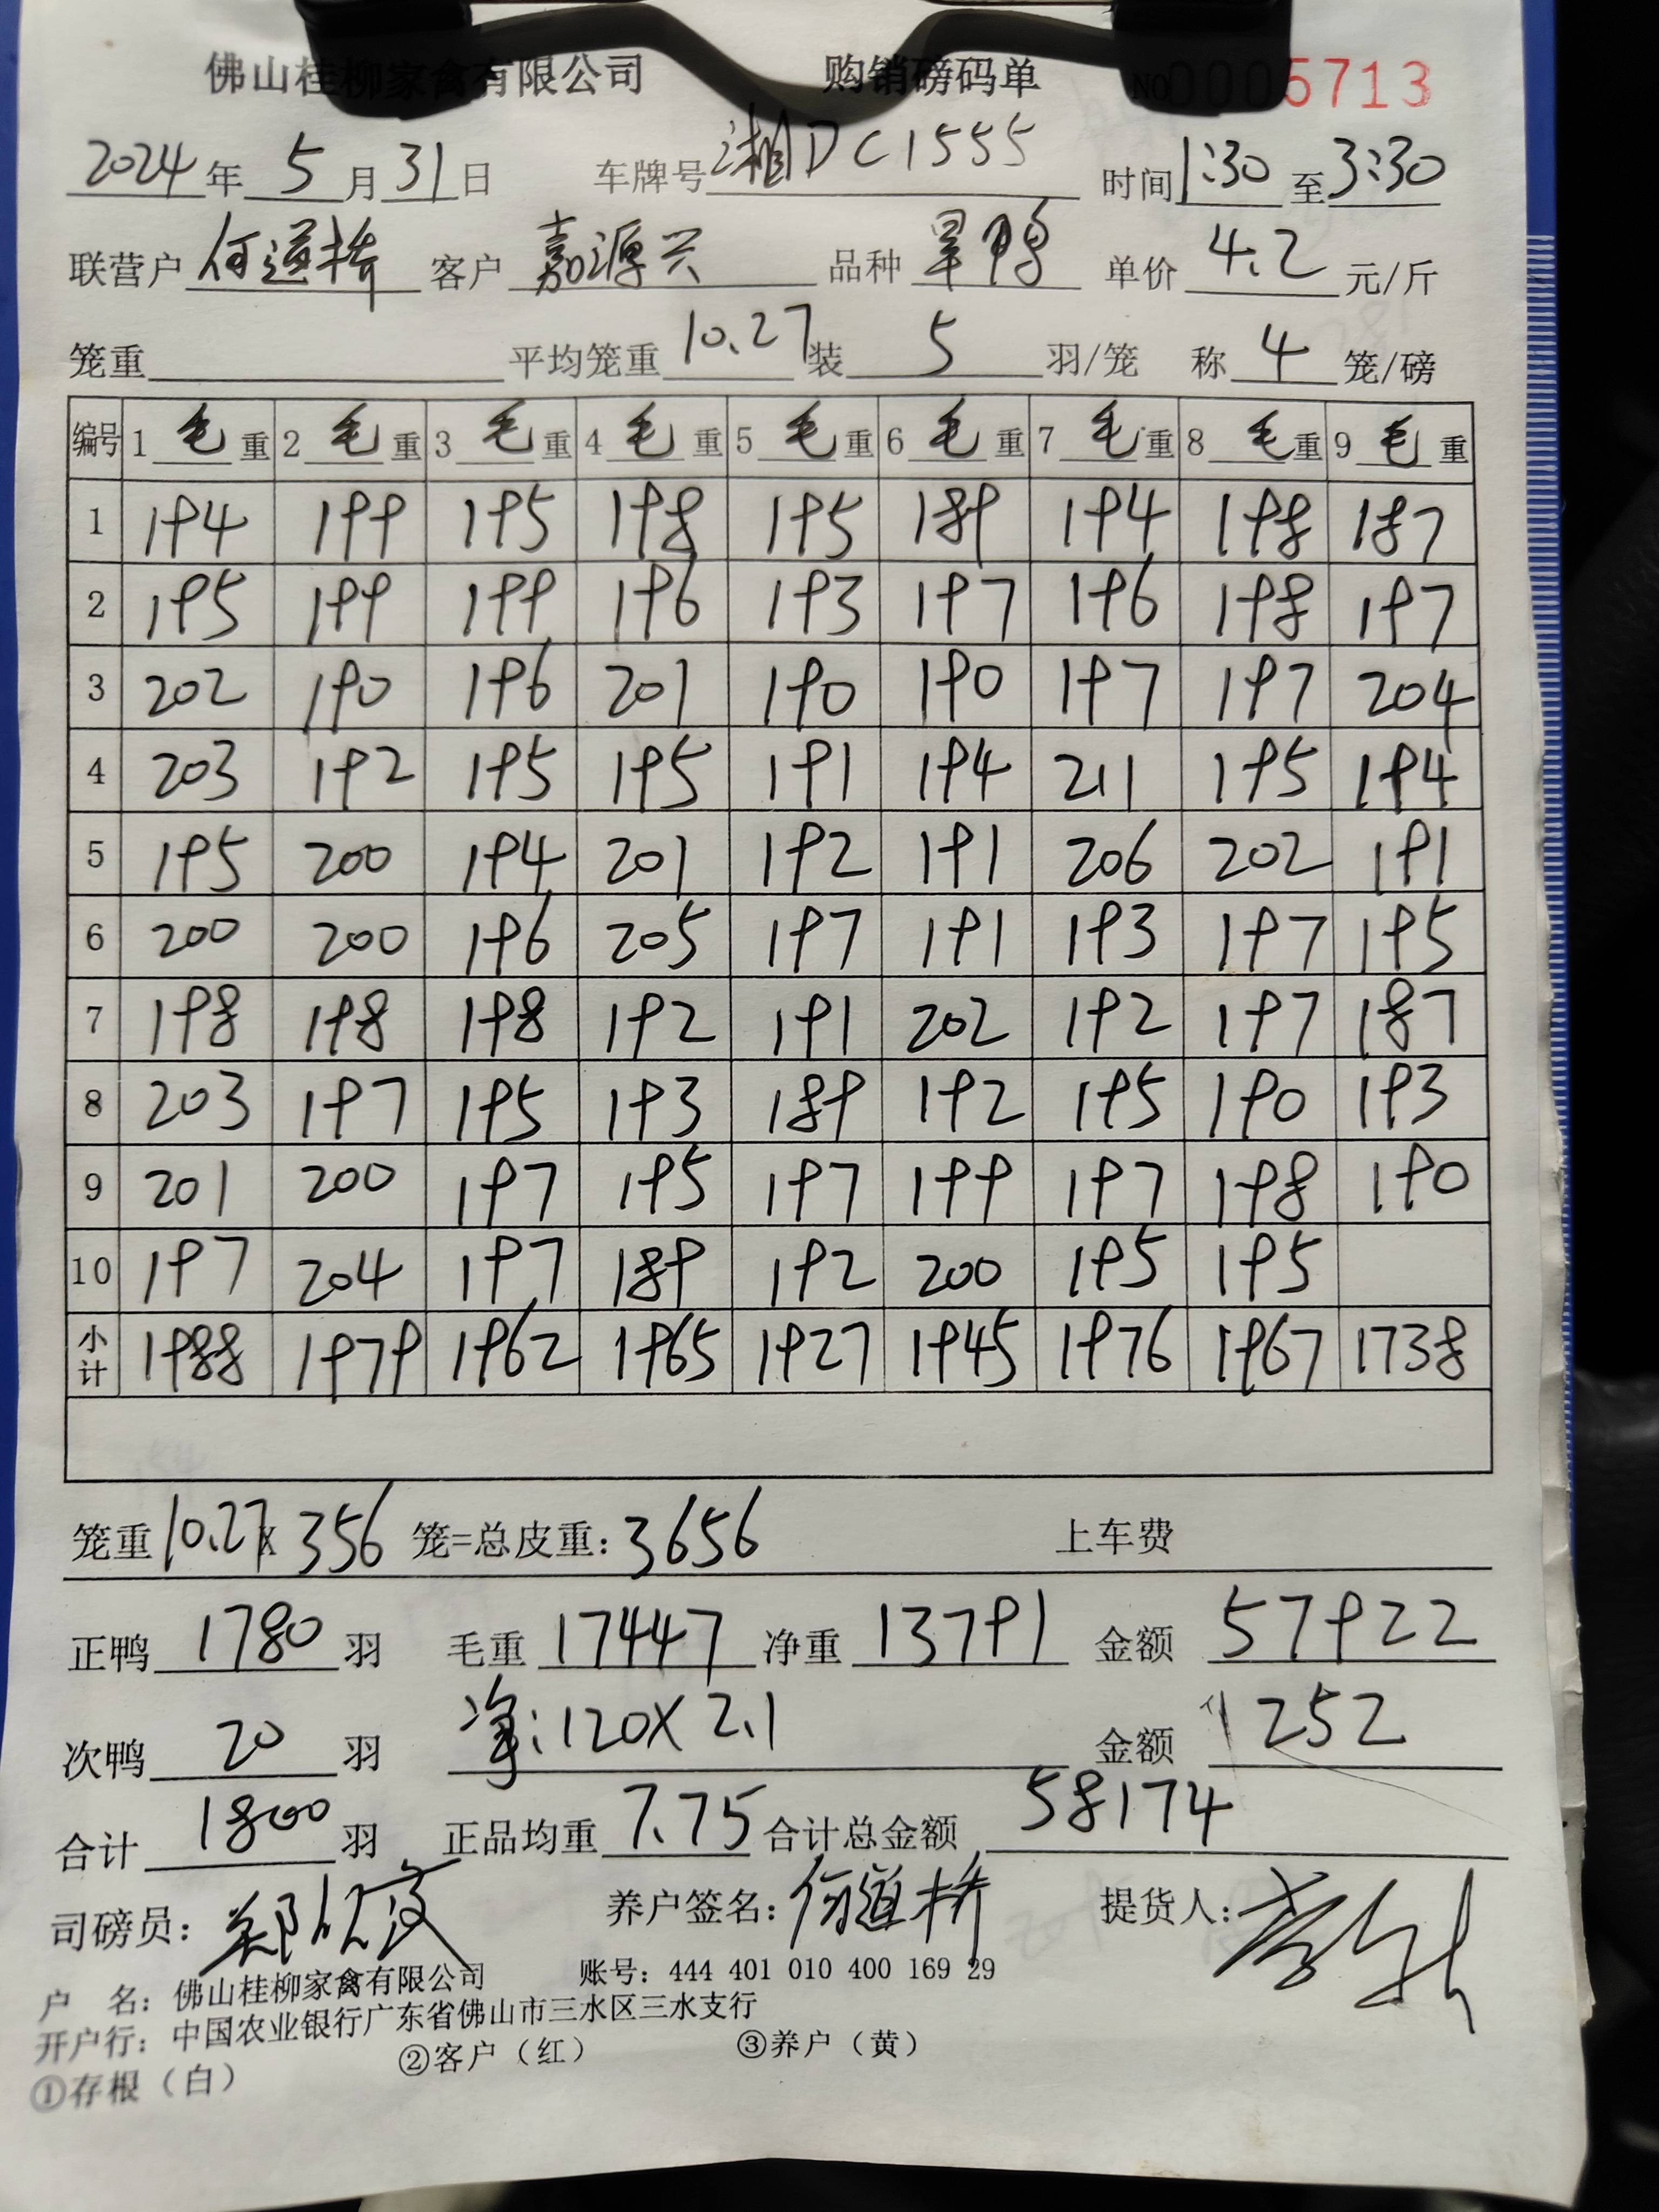 佛山桂柳家禽有限公司 购销磅码单 NO 0005713
2024年5月31日 车牌号 湘DC1555 时间 1:30 至 3:30
联营户 何道桥 客户 嘉源兴 品种 旱鸭 单价 4.2 元/斤
笼重 平均笼重 10.27 装 5 羽/笼 称 4 笼/磅
编号 1 毛重 2 毛重 3 毛重 4 毛重 5 毛重 6 毛重 7 毛重 8 毛重 9 毛重
1 194 199 195 198 195 189 194 198 187
2 195 199 199 196 193 197 196 198 197
3 202 190 196 201 190 190 197 197 204
4 203 192 195 195 191 194 211 195 194
5 195 200 194 201 192 191 206 202 191
6 200 200 196 205 197 191 193 197 195
7 198 198 198 192 191 202 192 197 187
8 203 197 195 193 189 192 195 190 193
9 201 200 197 195 197 199 197 198 190
10 197 204 197 189 192 200 195 195
小计 1988 1979 1962 1965 1927 1945 1976 1967 1738
笼重 10.27 x 356 笼=总皮重: 3656 上车费
正鸭 1780 羽 毛重 17447 净重 13791 金额 57922
次鸭 20 羽 净: 120 X 2.1 金额 252
合计 1800 羽 正品均重 7.75 合计总金额 58174
司磅员: 养户签名: 何道桥 提货人:
户 名: 佛山桂柳家禽有限公司 账号: 444 401 010 400 169 29
开户行: 中国农业银行广东省佛山市三水区三水支行
①存根（白） ②客户（红） ③养户（黄）